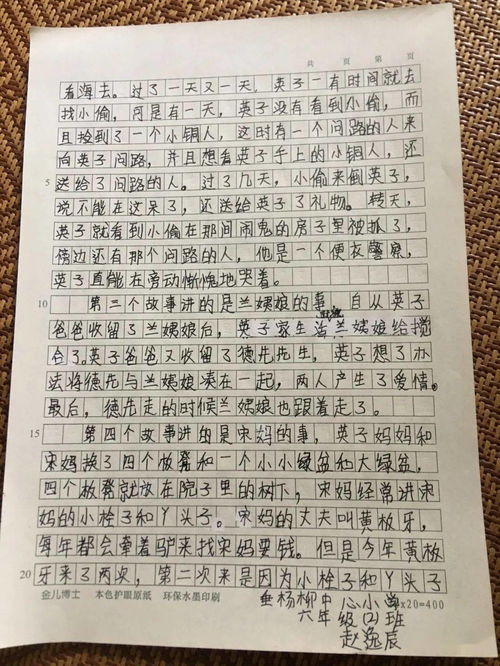 共 页 第 页
看海去。过了一天又一天，英子一有时间就去
找小偷，可是有一天，英子没有看到小偷，而
且捡到了一个小铜人，这时有一个问路的人来
向英子问路，并且想看英子手上的小铜人，还
5 送给了问路的人。过了几天，小偷来倒英子，
说不能在这呆了，还送给英子了礼物。转天，
英子就看到小偷在那间闹鬼的房子里被抓了，
旁边还有那个问路的人，他是一个便衣警察，
英子直能在旁动惭愧地哭着。
10 第三个故事讲的是兰姨娘的事，自从英子
爸爸收留了兰姨娘后，英子家生活兰姨娘给搅
合了。英子爸爸又收留了德先先生，英子想了办
法将德先与兰姨娘凑在一起，两人产生了爱情。
最后，德先走的时候兰姨娘也跟着走了。
15 第四个故事讲的是宋妈的事，英子妈妈和
宋妈换了四个板凳和一个小小绿盆和大绿盆，
四个板凳就放在院子里的树下，宋妈经常讲宋
妈的小栓子和丫头子。宋妈的丈夫叫黄板牙，
每年都会牵着驴来找宋妈要钱。但是今年黄板
20 牙来了两次，第二次来是因为小栓子和丫头子
金儿博士 本色护眼原纸 环保水墨印刷 x20=400
垂杨柳中心小学
六年级(2)班
赵逸辰